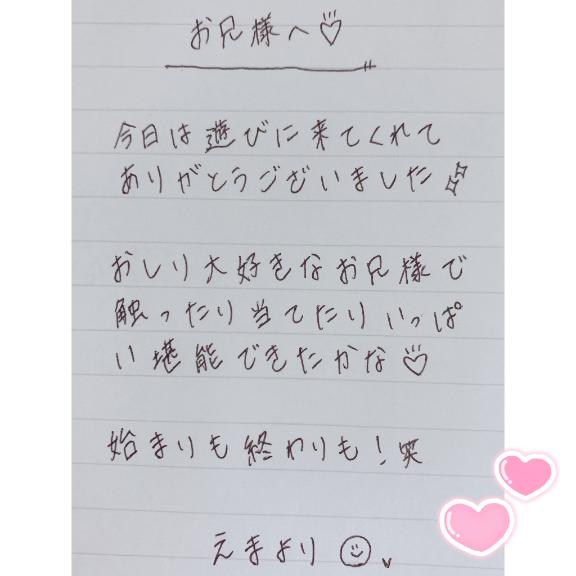 お兄様へ♡
今日は遊びに来てくれて
ありがとうございました
おしり大好きなお兄様で
触ったり当てたりいっぱ
い堪能できたかな♡
始まりも終わりも！笑
えまより